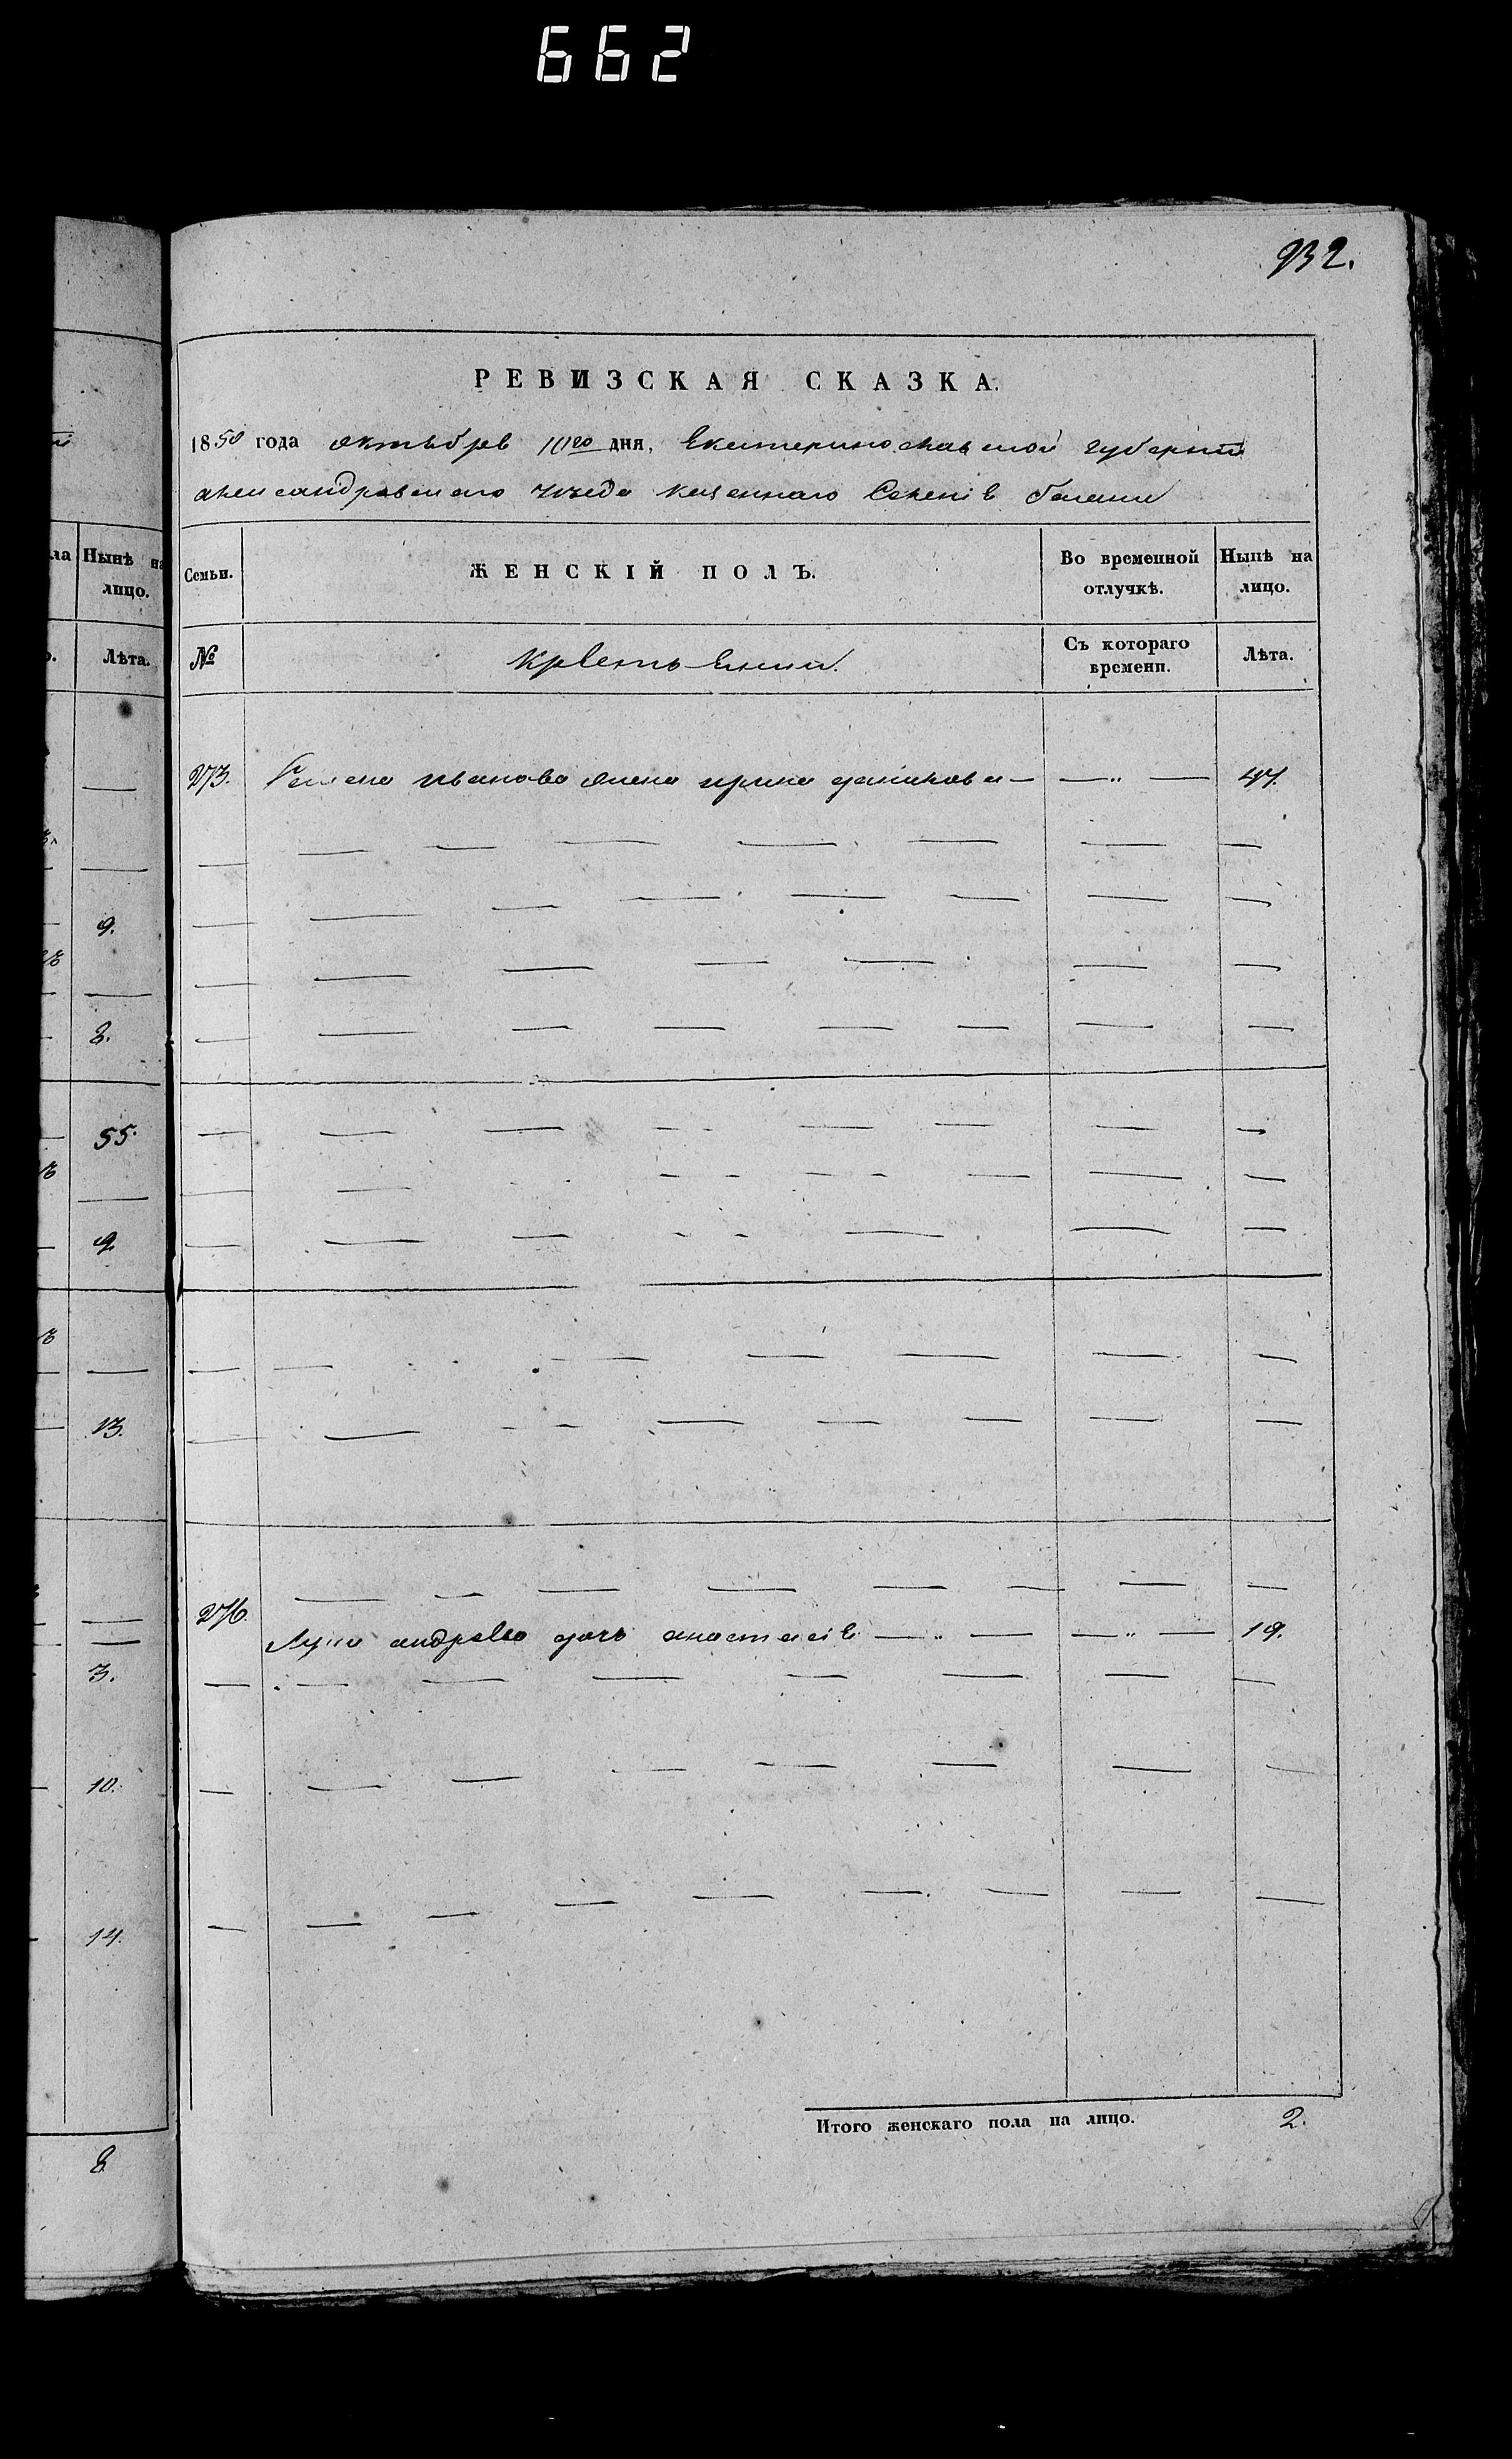 662
932.
РЕВИЗСКАЯ СКАЗКА.
1850 года октября 10го дня, Екатеринославской губерніи
александровскаго уезда казеннаго Селенія
Семьи. ЖЕНСКІЙ ПОЛЪ. Во временной отлучкѣ. Нынѣ на лицо.
№ Крестьянии. Съ котораго времени. Лѣта.
273. иванова жена ирина данилова — — „ — 47.
276.
андрева дочь анастасія — „ — — „ — 19.
Итого женскаго пола на лицо. 2.
ла Нынѣ на лицо.
Лѣта.
9.
8.
55.
9.
13.
3.
10.
14.
8